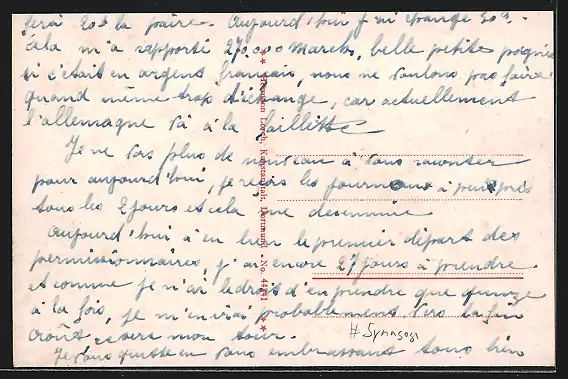 serai 20f la paire. Aujourd'hui j'ai changé 50f.
Cela m'a rapporté 27.000 Marcks, belle petite poignée
si c'était en argent français, nous ne voulons pas faire
quand même trop d'échange, car actuellement
l'allemagne va à la faillitte
Je ne vois plus de nouveau à vous raconter
pour aujourd'hui, je reçois les journeaux à peu près
tous les 2 jours et cela me desennuie
Aujourd'hui a eu lieu le premier départ des
permissionnaires, j'ai encore 27 jours à prendre
et comme je n'ai le droit d'en prendre que quinze
à la fois, je m'en irai probablement vers la fin
Août ce sera mon tour.
Je vous quitte en vous embrassant tous bien
Hermann Lorch, Kunstanstalt, Dortmund. No.
# Synagog